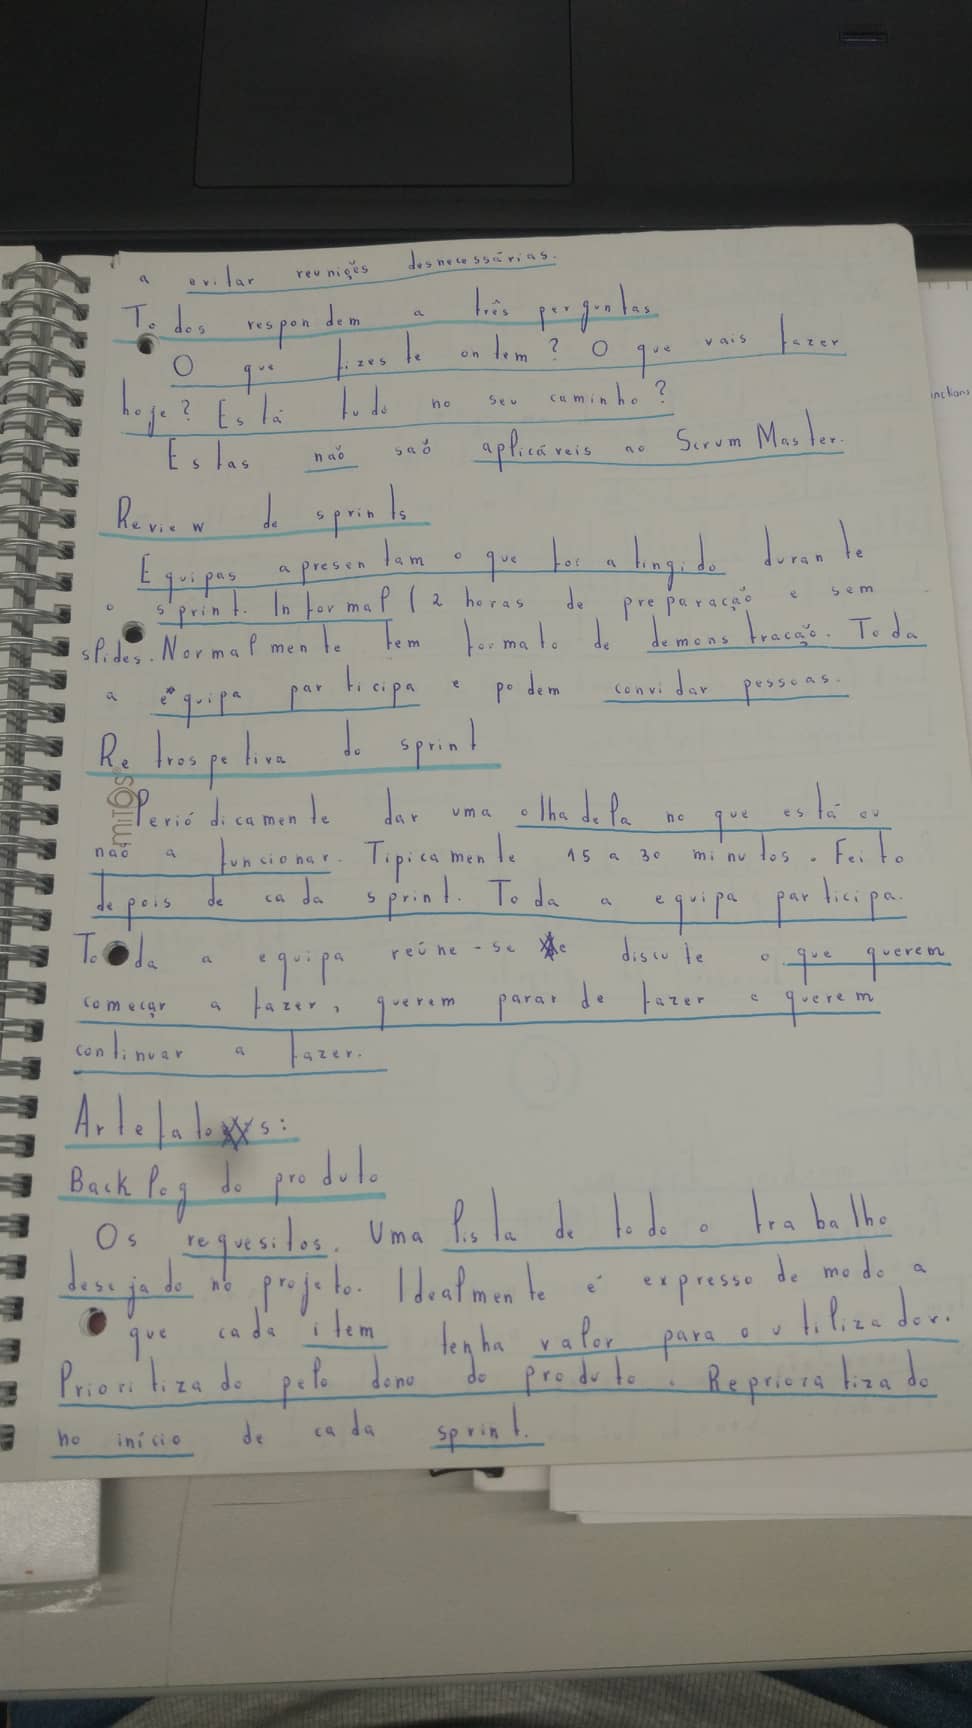 a evitar reuniões desnecessárias.
Todos respondem a três perguntas
O que fizeste ontem? O que vais fazer
hoje? Está tudo no seu caminho?
Estas não são aplicáveis ao Scrum Master.
Review de sprints
Equipas apresentam o que foi atingido durante
o sprint. Informal (2 horas de preparação e sem
slides. Normalmente tem formato de demonstração. Toda
a equipa participa e podem convidar pessoas.
Retrospetiva do sprint
Periódicamente dar uma olhadela no que está ou
não a funcionar. Tipicamente 15 a 30 minutos. Feito
depois de cada sprint. Toda a equipa participa.
Toda a equipa reúne-se e discute o que querem
começar a fazer, querem parar de fazer e querem
continuar a fazer.
Artefatos:
Backlog do produto
Os requesitos. Uma lista de todo o trabalho
desejado no projeto. Idealmente é expresso de modo a
que cada item tenha valor para o utilizador.
Prioritizado pelo dono do produto. Reprioratizado
no início de cada sprint.
miTOS
nctions